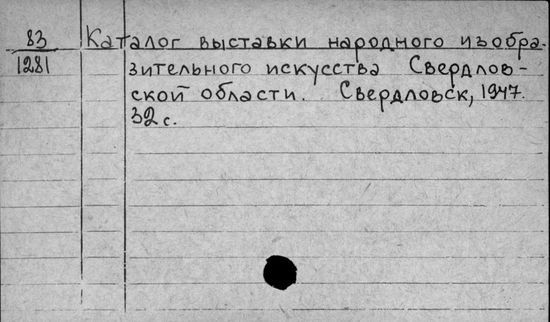 83 Каталог выставки народного изобра-
1281 зительного искусства Свердлов-
ской области. Свердловск, 1947.
32 с.